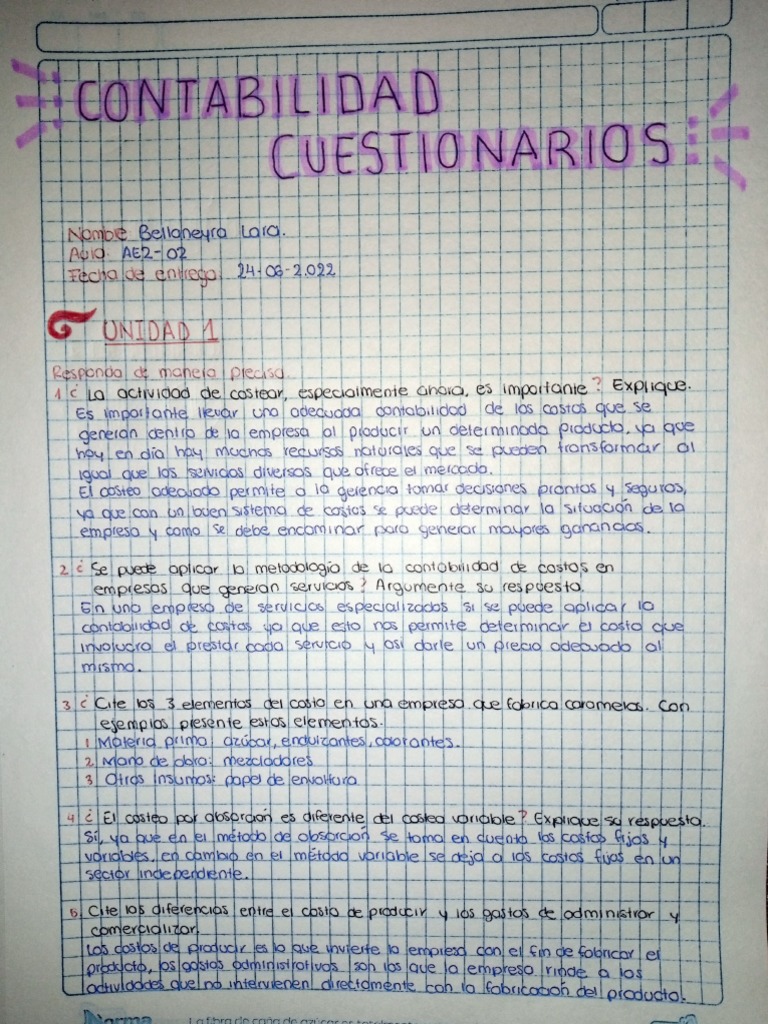 CONTABILIDAD
CUESTIONARIOS
Nombre Bellaneyra Lara.
Aula. AE2-02
Fecha de entrega. 24-06-2.022
UNIDAD 1
Responda de manera precisa.
1 ¿ La actividad de costear, especialmente ahora, es importante? Explique.
Es importante llevar una adecuada contabilidad de los costos que se
generan dentro de la empresa al producir un determinado producto, ya que
hoy en día hay muchos recursos naturales que se pueden transformar al
igual que los servicios diversos que ofrece el mercado.
El costeo adecuado permite a la gerencia tomar decisiones prontas y seguras,
ya que con un buen sistema de costos se puede determinar la situación de la
empresa y como se debe encaminar para generar mayores ganancias.
2 ¿ Se puede aplicar la metodología de la contabilidad de costos en
empresas que generan servicios? Argumente su respuesta.
En una empresa de servicios especializados si se puede aplicar la
contabilidad de costos ya que esto nos permite determinar el costo que
involucra el prestar cada servicio y así darle un precio adecuado al
mismo.
3 ¿ Cite los 3 elementos del costo en una empresa que fabrica caramelos. Con
ejemplos presente estos elementos.
1 Materia prima: azúcar, endulzantes, colorantes.
2 Mano de obra: mezcladores
3 Otros Insumos: papel de envoltura
4 ¿ El costeo por absorción es diferente del costeo variable? Explique su respuesta.
Sí, ya que en el método de absorción se toma en cuenta los costos fijos y
variables, en cambio en el método variable se deja a los costos fijos en un
sector independiente.
5. Cite las diferencias entre el costo de producir y los gastos de administrar y
comercializar.
Los costos de producir es lo que invierte la empresa con el fin de fabricar el
producto, los gastos administrativos son los que la empresa rinde a las
actividades que no intervienen directamente con la fabricación del producto.
Norma